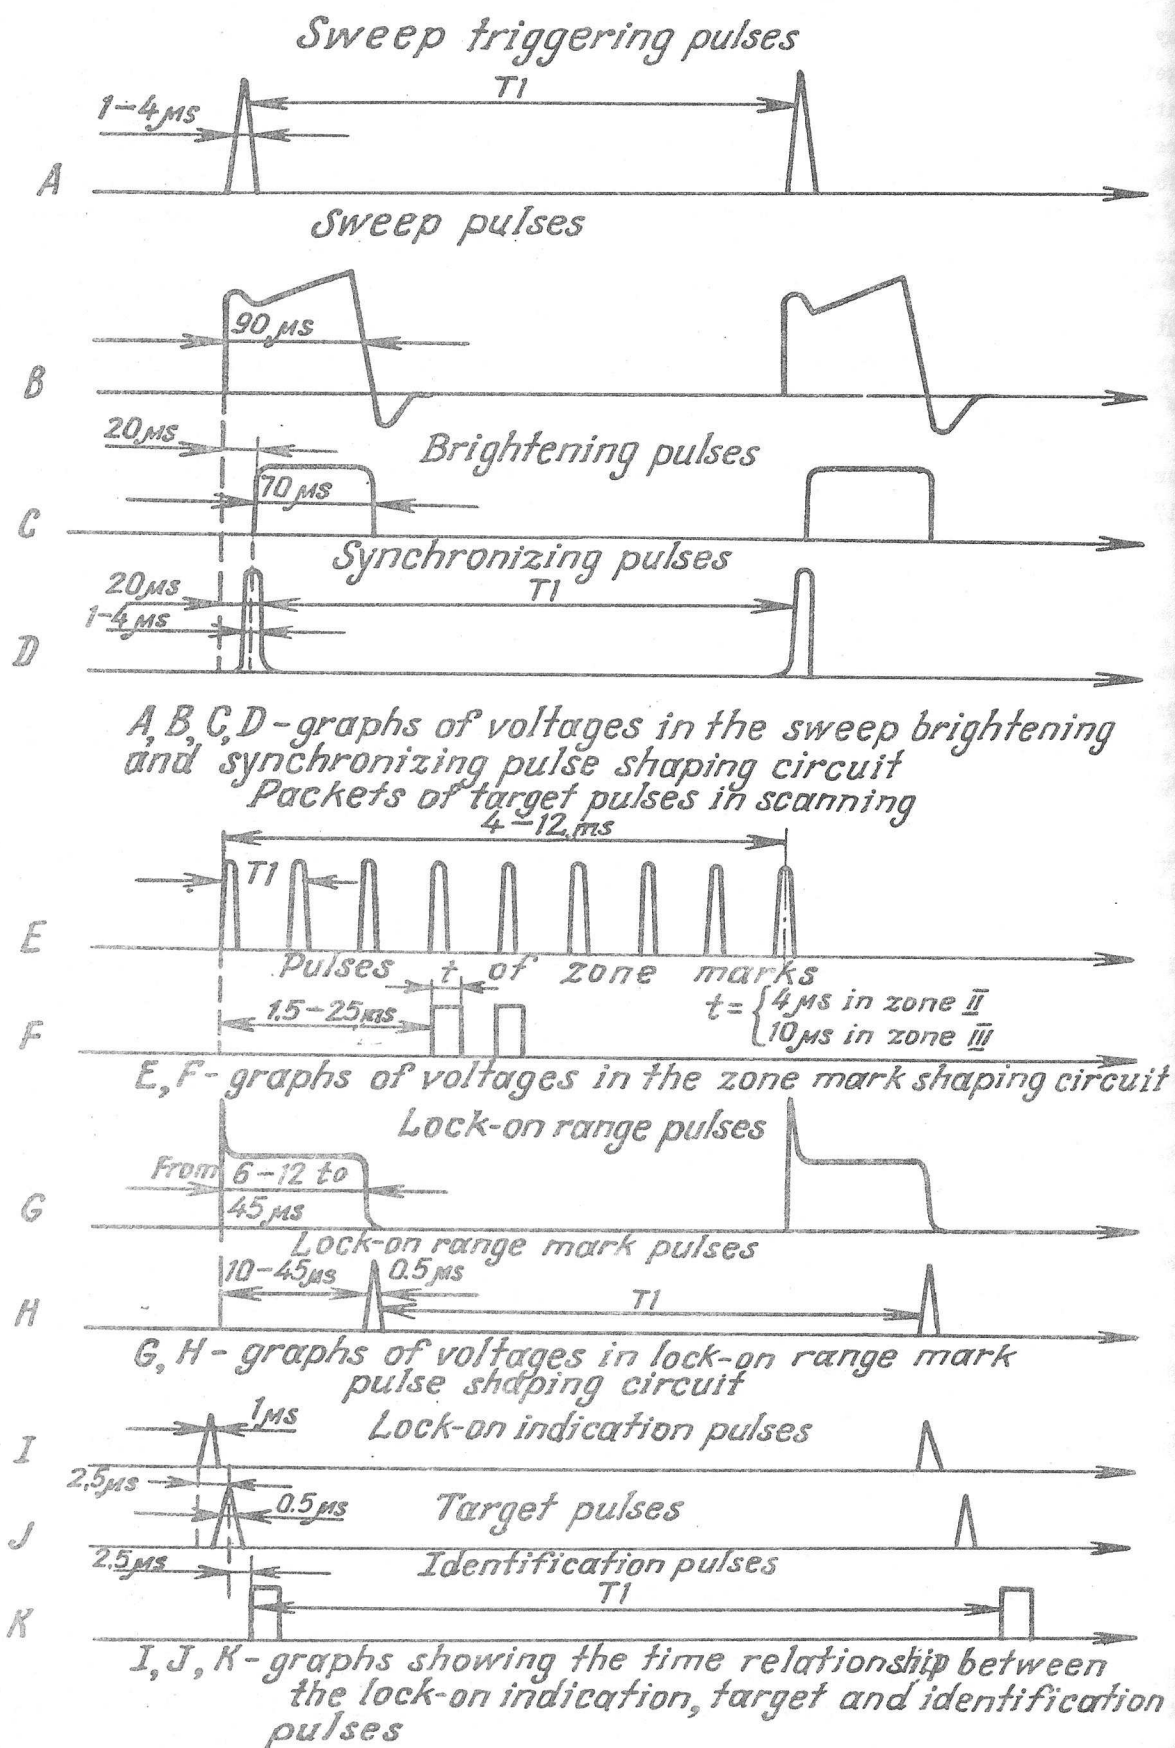 Sweep triggering pulses
T1
1–4 µs
A
Sweep pulses
90 µs
B
20 µs
Brightening pulses
70 µs
C
Synchronizing pulses
20 µs
T1
1–4 µs
D
A, B, C, D – graphs of voltages in the sweep brightening
and synchronizing pulse shaping circuit
Packets of target pulses in scanning
4–12 ms
T1
E
Pulses t of zone marks
1.5–25 ms
t = { 4 µs in zone II
10 µs in zone III
F
E, F – graphs of voltages in the zone mark shaping circuit
Lock-on range pulses
From 6–12 to
45 µs
G
Lock-on range mark pulses
10–45 µs 0.5 µs
T1
H
G, H – graphs of voltages in lock-on range mark
pulse shaping circuit
1 µs
Lock-on indication pulses
I
2.5 µs
0.5 µs
Target pulses
J
2.5 µs
Identification pulses
T1
K
I, J, K – graphs showing the time relationship between
the lock-on indication, target and identification
pulses